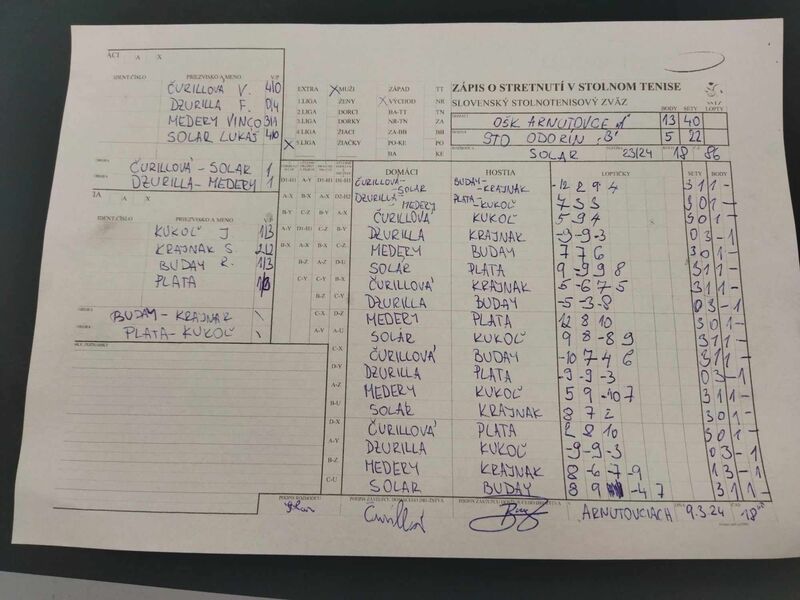 ÁCI A X
IDENT.ČÍSLO PRIEZVISKO A MENO V/P
ČURILLOVÁ V. 4/0
DZURILLA F. 0/4
MEDERY VINCO 3/1
SOLAR LUKÁŠ 4/0
ČURILLOVÁ - SOLAR 1
DZURILLA - MEDERY 1
IA A X
IDENT.ČÍSLO PRIEZVISKO A MENO V/P
KUKOĽ J. 1/3
KRAJNAK S 2/2
BUDAY R. 1/3
PLATA
BUDAY - KRAJNAK \
PLATA - KUKOĽ \
EXTRA X MUŽI ZÁPAD TT
1.LIGA ŽENY X VÝCHOD NR
2.LIGA DORCI BA-TT TN
3.LIGA DORKY NR-TN ZA
4.LIGA ŽIACI ZA-BB BB
X 5.LIGA ŽIAČKY PO-KE PO
BA KE
ZÁPIS O STRETNUTÍ V STOLNOM TENISE
SLOVENSKÝ STOLNOTENISOVÝ ZVÄZ
BODY SETY LOPTY
DOMÁCI OŠK ARNUTOVCE "A" 13 40
HOSTIA STO ODORÍN "B" 5 22
SOLAR 23/24 18 86
DOMÁCI HOSTIA LOPTIČKY SETY BODY
ČURILLOVÁ - SOLAR BUDAY - KRAJNAK -12 2 9 4 3 1 1 -
DZURILLA - MEDERY PLATA - KUKOĽ 7 3 3 3 0 1 -
ČURILLOVÁ KUKOĽ 5 9 4 3 0 1 -
DZURILLA KRAJNAK -9 -9 -3 0 3 - 1
MEDERY BUDAY 7 7 6 3 0 1 -
SOLAR PLATA 9 -9 9 8 3 1 1 -
ČURILLOVÁ KRAJNAK 5 -6 7 5 3 1 1 -
DZURILLA BUDAY -5 -3 -8 0 3 - 1
MEDERY PLATA 12 8 10 3 0 1 -
SOLAR KUKOĽ 9 8 -8 9 3 1 1 -
ČURILLOVÁ BUDAY -10 7 4 6 3 1 1 -
DZURILLA PLATA -9 -9 -3 0 3 - 1
MEDERY KUKOĽ 5 9 -10 7 3 1 1 -
SOLAR KRAJNAK 8 7 2 3 0 1 -
ČURILLOVÁ PLATA 2 8 10 3 0 1 -
DZURILLA KUKOĽ -9 -9 -3 0 3 - 1
MEDERY KRAJNAK 8 -6 -7 -9 1 3 - 1
SOLAR BUDAY 8 9 -4 7 3 1 1 -
PODPIS ROZHODCU PODPIS ZÁSTUPCU DOMÁCEHO DRUŽSTVA
ARNUTOVCIACH DŇA 9.3.24